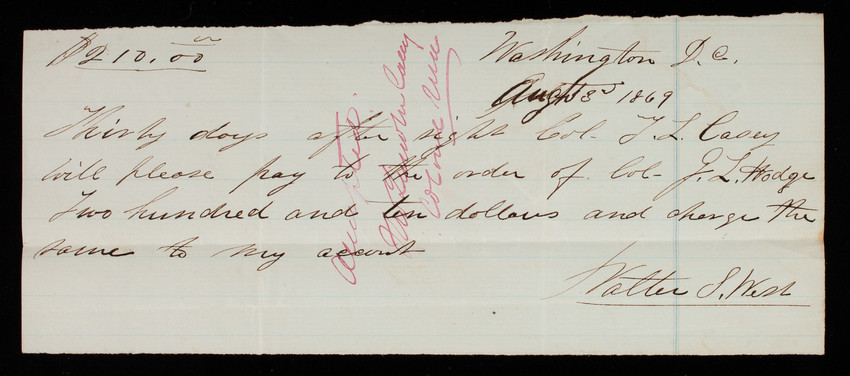 $210.00
Washington D.C.
Augt 3d 1869
Thirty days after sight Col- T. L. Casey
will please pay to the order of Col- J. L. Hodge
Two hundred and ten dollars and charge the
same to my acount
Walter S. West
Accepted.
Thos Lincoln Casey